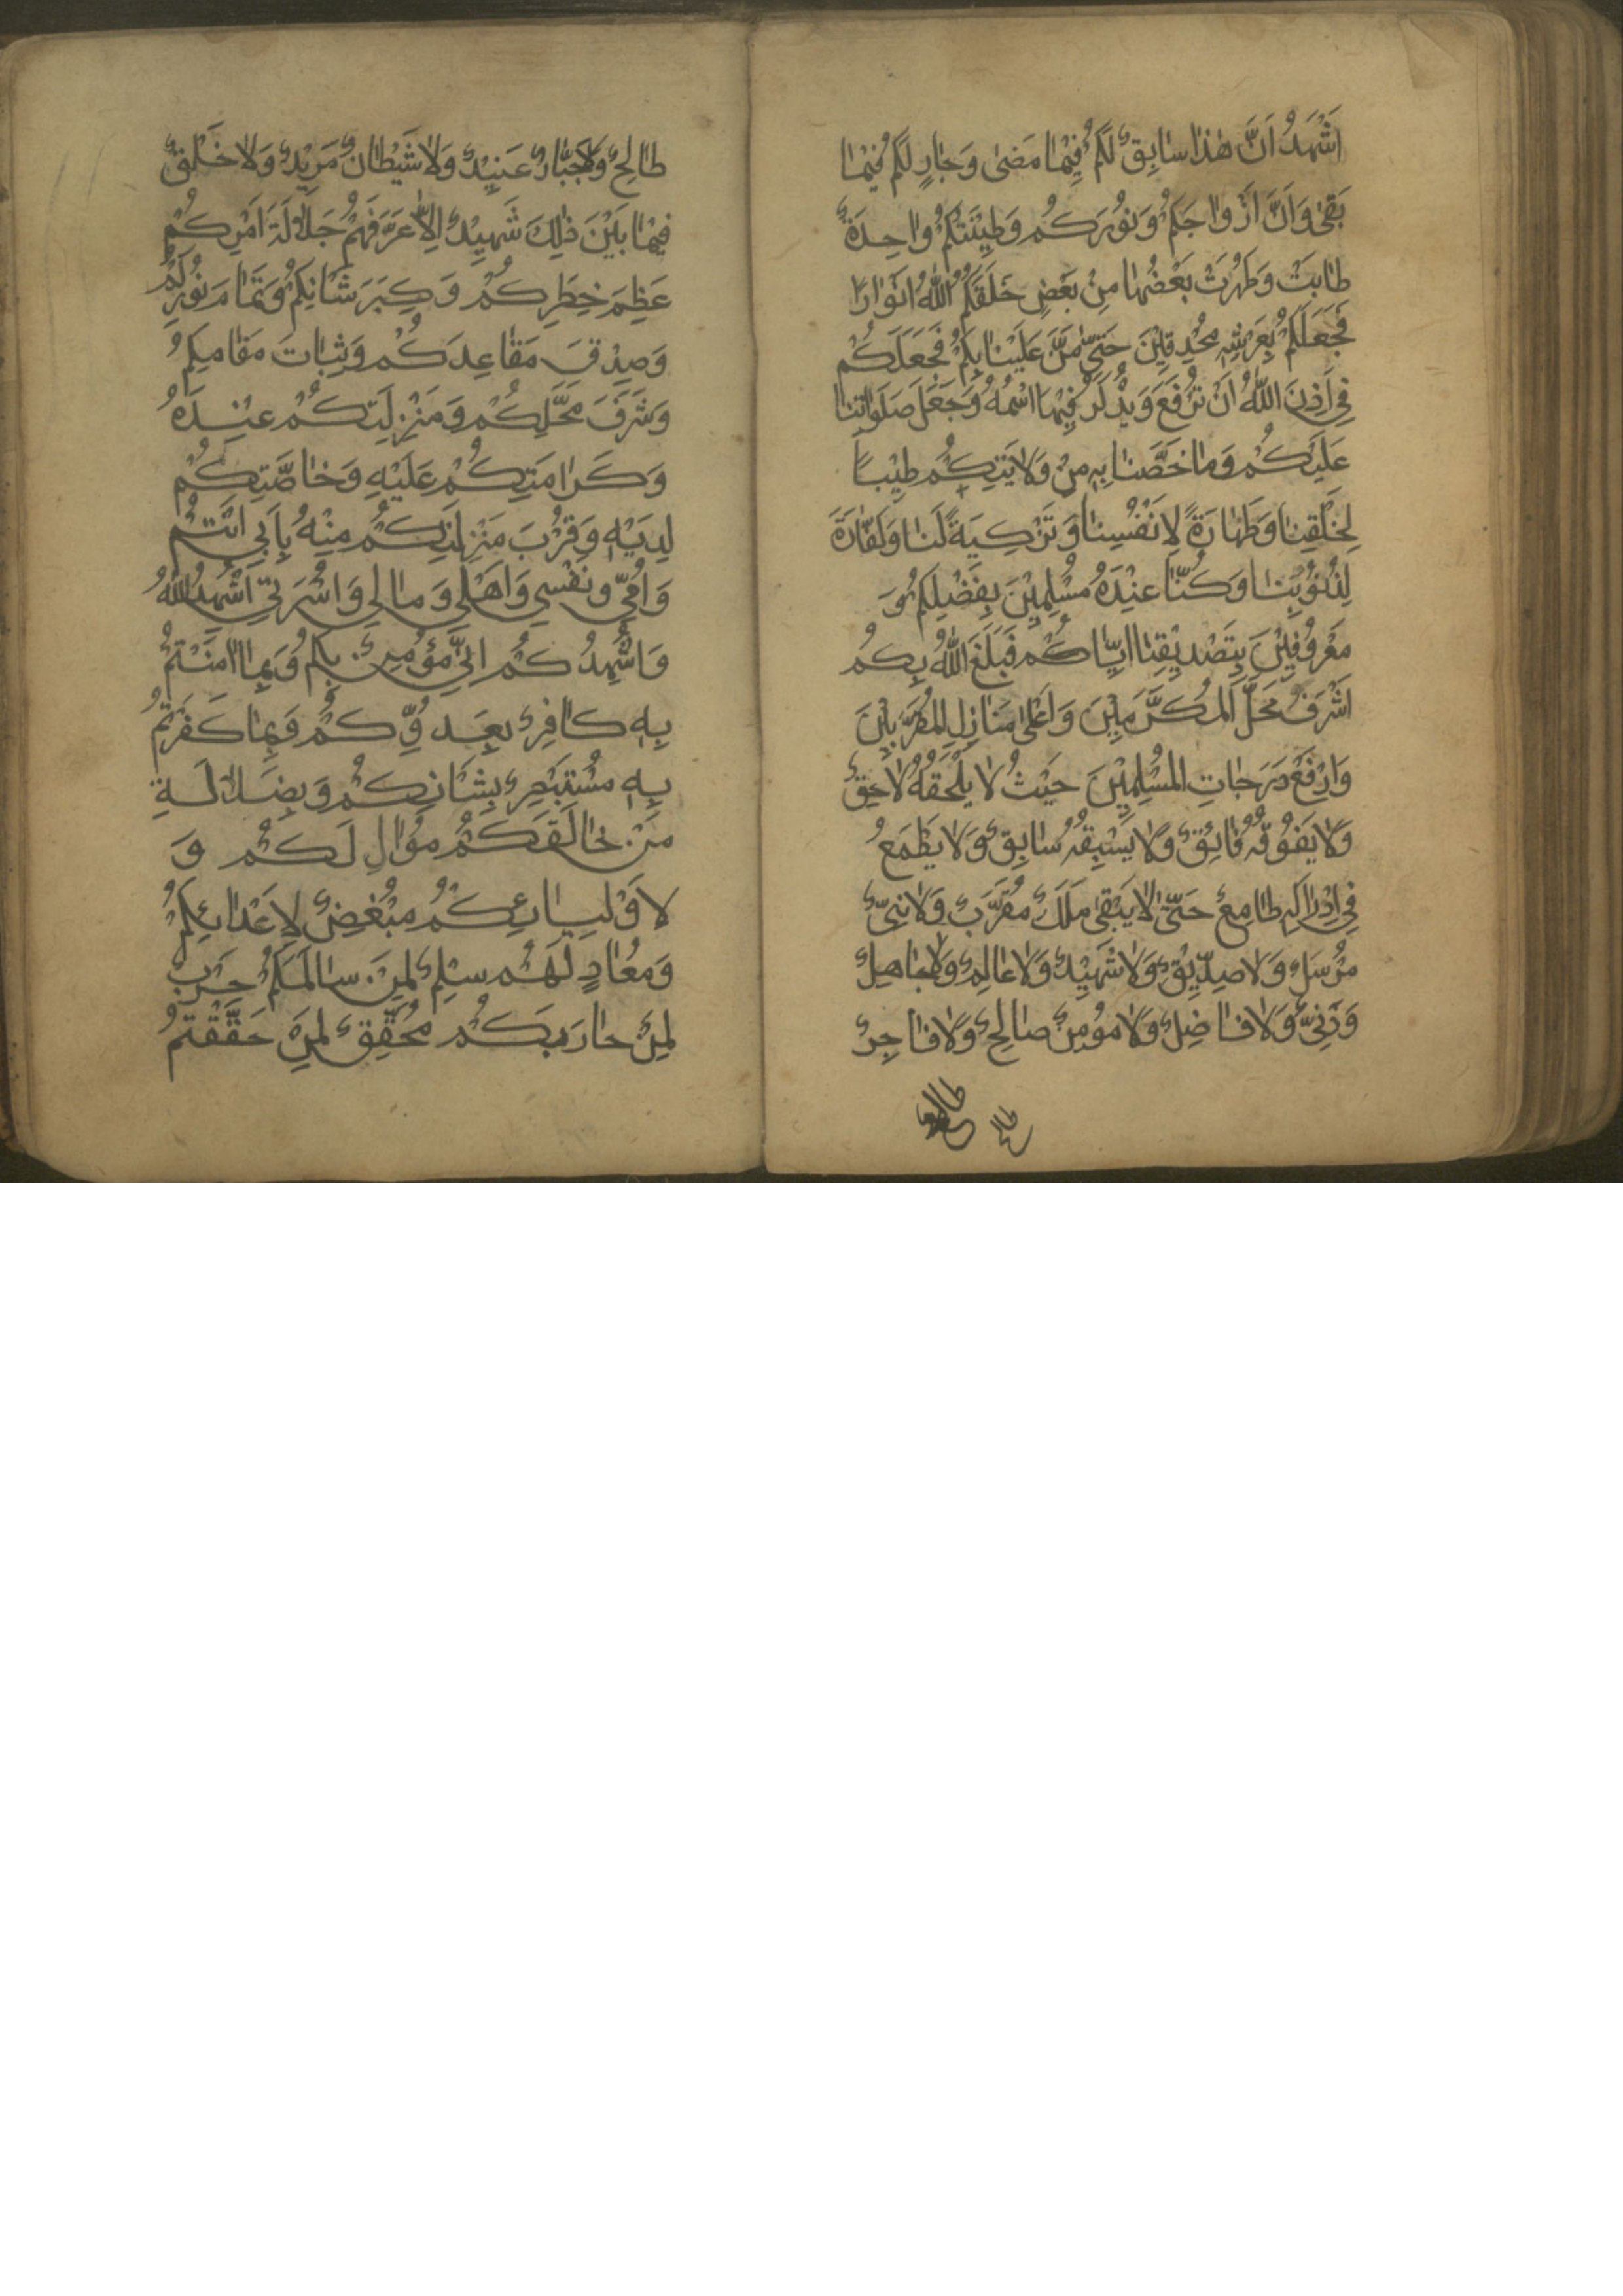 اَشْهَدُ اَنَّ هٰذَا سَابِقٌ لَكُمْ فِيْمَا مَضىٰ وَجَارٍ لَكُمْ فِيْمَا
بَقىٰ وَاَنَّ اَرْوَاحَكُمْ وَنُوْرَكُمْ وَطِيْنَتَكُمْ وَاحِدَةٌ
طَابَتْ وَطَهُرَتْ بَعْضُهَا مِنْ بَعْضٍ خَلَقَكُمُ اللّٰهُ اَنْوَارًا
فَجَعَلَكُمْ بِعَرْشِهِ مُحْدِقِيْنَ حَتّىٰ مَنَّ عَلَيْنَا بِكُمْ فَجَعَلَكُمْ
فِي اَذِنَ اللّٰهُ اَنْ تُرْفَعَ وَيُذْكَرَ فِيْهَا اسْمُهُ وَجَعَلَ صَلَوَاتِنَا
عَلَيْكُمْ وَمَا خَصَّنَا بِهِ مِنْ وَلَايَتِكُمْ طِيْبًا
لِخَلْقِنَا وَطَهَارَةً لِاَنْفُسِنَا وَتَزْكِيَةً لَنَا وَكَفَّارَةً
لِذُنُوْبِنَا وَكُنَّا عِنْدَهُ مُسْلِمِيْنَ بِفَضْلِكُمْ وَ
مَعْرُوْفِيْنَ بِتَصْدِيْقِنَا اِيَّاكُمْ فَبَلَغَ اللّٰهُ بِكُمْ
اَشْرَفَ مَحَلِّ الْمُكَرَّمِيْنَ وَاَعْلىٰ مَنَازِلِ الْمُقَرَّبِيْنَ
وَارْفَعَ دَرَجَاتِ الْمُسْلِمِيْنَ حَيْثُ لَا يَلْحَقُهُ لَاحِقٌ
وَلَا يَفُوْقُهُ فَائِقٌ وَلَا يَسْبِقُهُ سَابِقٌ وَلَا يَطْمَعُ
فِي اِدْرَاكِهِ طَامِعٌ حَتّىٰ لَا يَبْقىٰ مَلَكٌ مُقَرَّبٌ وَلَا نَبِيٌّ
مُرْسَلٌ وَلَا صِدِّيْقٌ وَلَا شَهِيْدٌ وَلَا عَالِمٌ وَلَا جَاهِلٌ
وَدَنِيٌّ وَلَا فَاضِلٌ وَلَا مُؤْمِنٌ صَالِحٌ وَلَا فَاجِرٌ
طَالِحٌ وَلَا جَبَّارٌ عَنِيْدٌ وَلَا شَيْطَانٌ مَرِيْدٌ وَلَا خَلْقٌ
فِيْمَا بَيْنَ ذٰلِكَ شَهِيْدٌ اِلَّا عَرَّفَهُمْ جَلَالَةَ اَمْرِكُمْ
عَظِمَ خَطَرِكُمْ وَكِبَرَ شَانِكُمْ وَتَمَامَ نُوْرِكُمْ
وَصِدْقَ مَقَاعِدَكُمْ وَثَبَاتَ مَقَامِكُمْ
وَشَرَفَ مَحَلِّكُمْ وَمَنْزِلَتِكُمْ عِنْدَهُ
وَكَرَامَتِكُمْ عَلَيْهِ وَخَاصَّتِكُمْ
لَدَيْهِ وَقُرْبَ مَنْزِلَتِكُمْ مِنْهُ بِاَبِي اَنْتُمْ
وَاُمِّي وَنَفْسِي وَاَهْلِي وَمَالِي وَاُسْرَتِي اُشْهِدُ اللّٰهَ
وَاُشْهِدُكُمْ اِنِّي مُؤْمِنٌ بِكُمْ وَبِمَا اٰمَنْتُمْ
بِهِ كَافِرٌ بِعَدُوِّكُمْ وَبِمَا كَفَرْتُمْ
بِهِ مُسْتَبْصِرٌ بِشَانِكُمْ وَبِضَلَالَةِ
مَنْ خَالَفَكُمْ مُوَالٍ لَكُمْ وَ
لِاَوْلِيَائِكُمْ مُبْغِضٌ لِاَعْدَائِكُمْ
وَمُعَادٍ لَهُمْ سِلْمٌ لِمَنْ سَالَمَكُمْ حَرْبٌ
لِمَنْ حَارَبَكُمْ مُحَقِّقٌ لِمَا حَقَّقْتُمْ